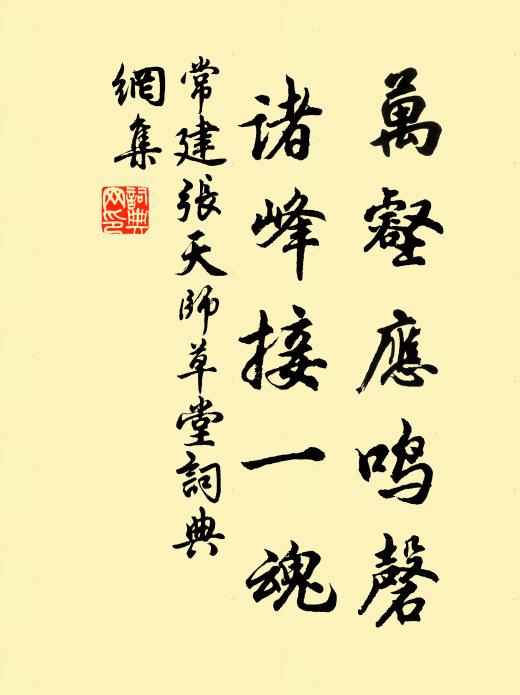 萬壑應鳴磬
諸峰接一魂
常建張天師草堂詞典
網集
詞典網印